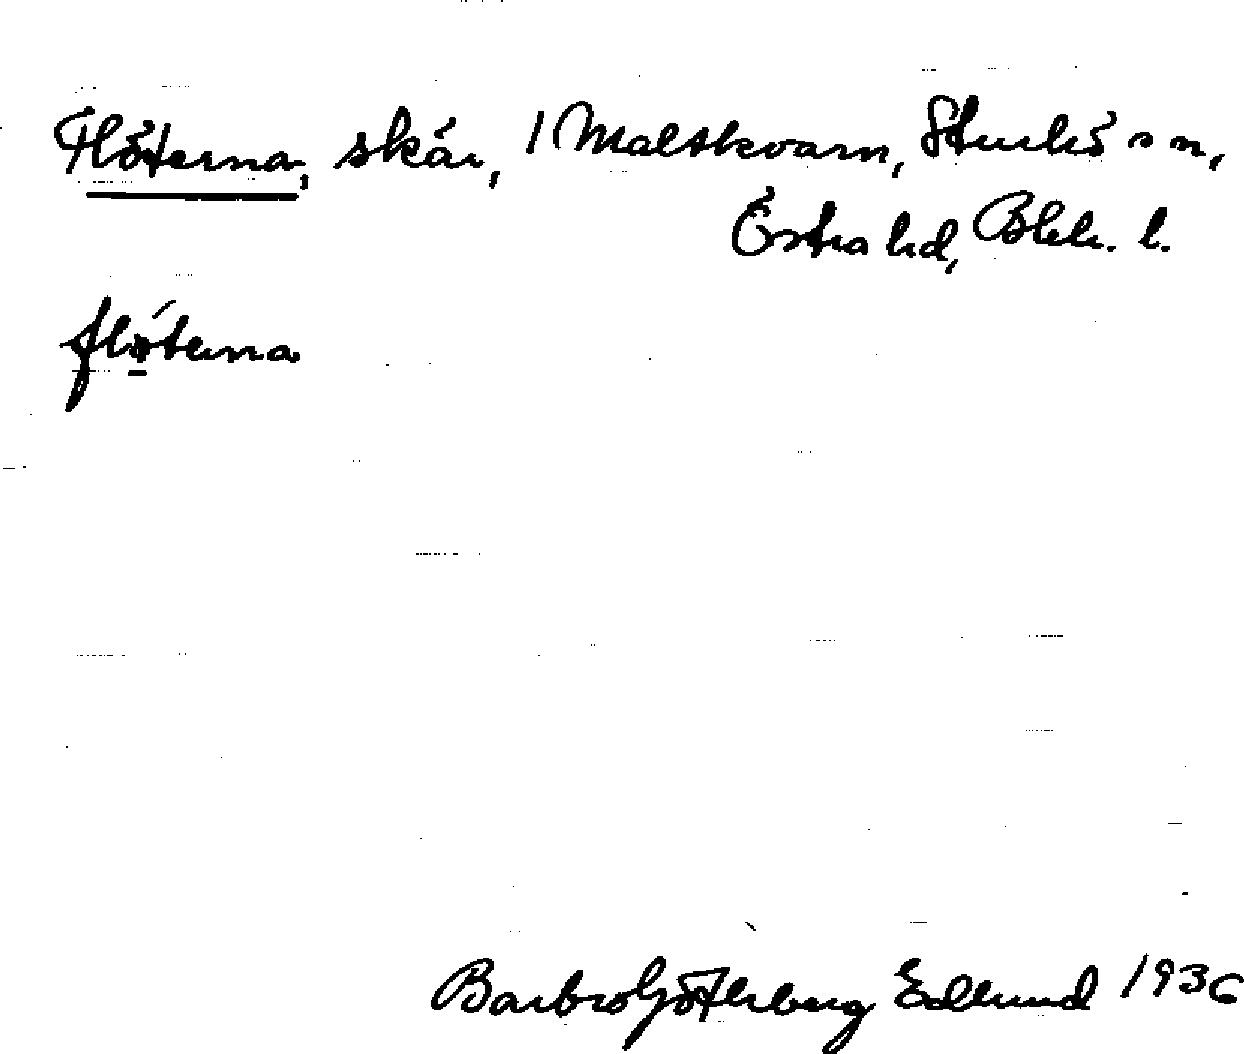 Flöterna, skär, / Maltkvarn, Sturkö sn,
Östra hd, Blek. l.
flö́terna
Barbro Götherberg Edlund 1936